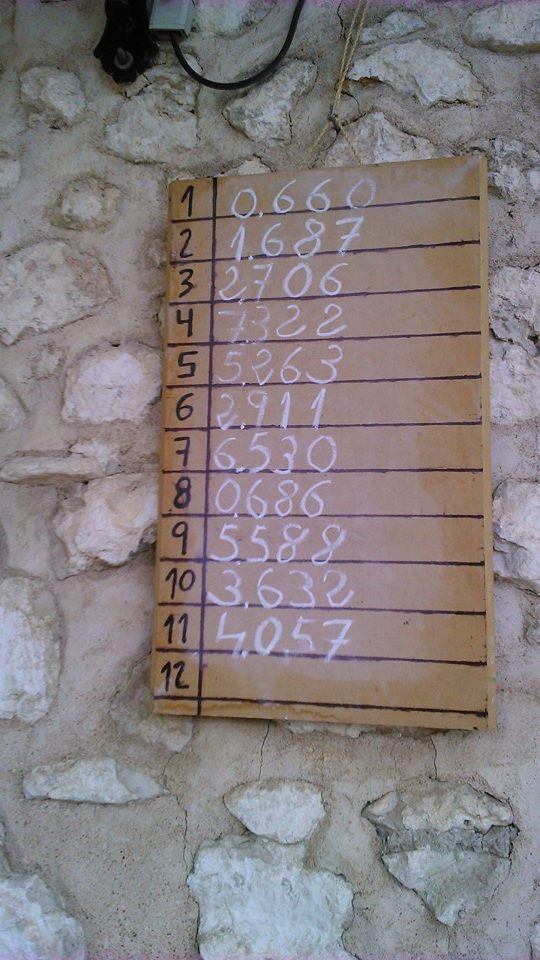 1 0.660
2 1.687
3 2.706
4 7.322
5 5.263
6 2.911
7 6.530
8 0.686
9 5.588
10 3.632
11 4.057
12